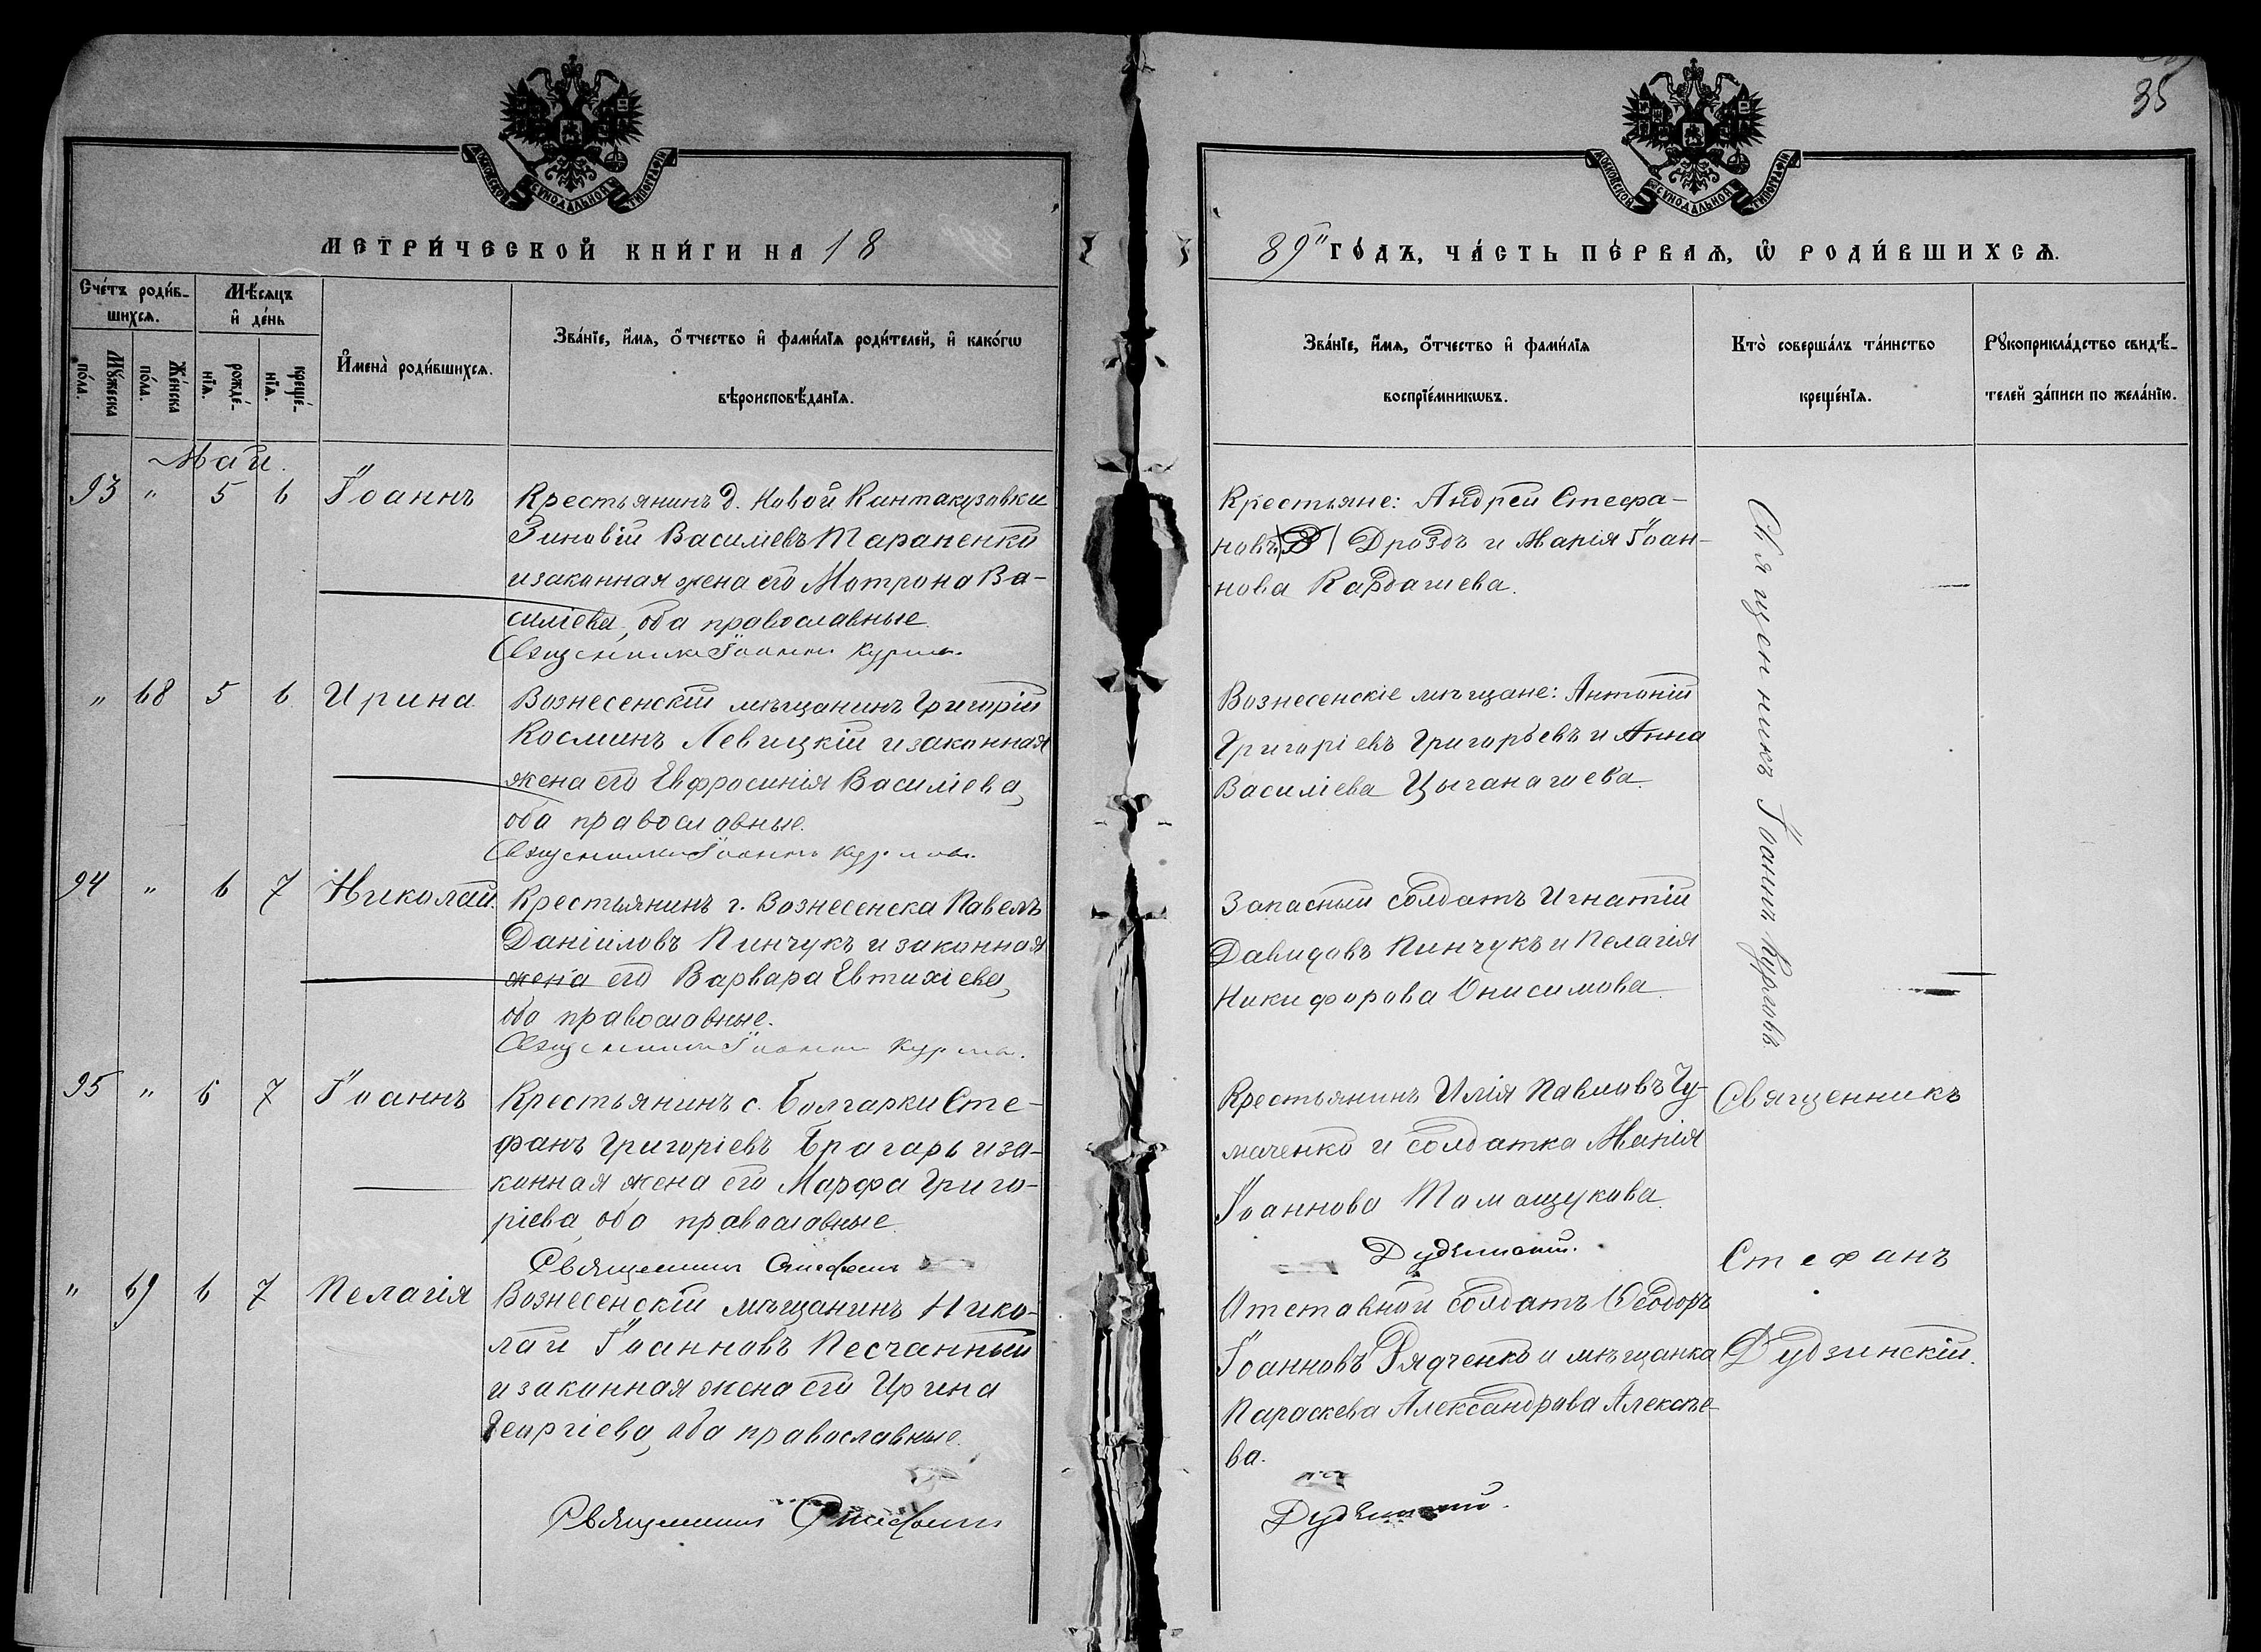 35
МОСКОВСКОЙ СУНОДАЛЬНОЙ ТИПОГРАФІИ
МОСКОВСКОЙ СУНОДАЛЬНОЙ ТИПОГРАФІИ
МЕТРИ́ЧЕСКОЙ КНИ́ГИ НА 18
89й ГО́ДЪ, ЧА́СТЬ ПЕ́РВАѦ, Ѡ РОДИ́ВШИХСѦ.
Сче́тъ роди́в-
шихсѧ.
Мѣ́сѧцъ
и де́нь
Мꙋ́жеска
по́ла.
Же́нска
по́ла.
рожде́-
нїѧ.
креще́-
нїѧ.
И҆мена̀ роди́вшихсѧ.
Зва́нїе, и҆́мѧ, о҆́тчество и҆ фами́лїѧ роди́телей, и҆ како́гѡ
вѣроисповѣ́данїѧ.
Зва́нїе, и҆́мѧ, о҆́тчество и҆ фами́лїѧ
воспрїе́мникѡвъ.
Кто̀ соверша́лъ та́инство
креще́нїѧ.
Рꙋкоприкла́дство свидѣ́-
телей за́писи по жела́нїю.
Май.
93 " 5 6 Іоаннъ
Крестьянинъ д. Новой Кантакузовки
Зиновій Василіевъ Тараненко
и законная жена его Матрона Ва-
силіева, оба православные.
Священникъ Іоаннъ
Крестьяне: Андрей Стефа-
новъ Дроздъ и Марія Іоан-
нова Кардашева.
Священникъ Іоаннъ
" 68 5 6 Ирина
Вознесенскій мѣщанинъ Григорій
Косминъ Левицкій и законная
жена его Евфросинія Василіева,
оба православные.
Священникъ Іоаннъ
Вознесенскіе мѣщане: Антоній
Григоріевъ Григорьевъ и Анна
Василіева Цыганашева.
94 " 6 7 Николай.
Крестьянинъ г. Вознесенска Павелъ
Даніиловъ Пинчукъ и законная
жена его Варвара Евтихіева,
оба православные.
Священникъ Іоаннъ
Запасный солдатъ Игнатій
Давидовъ Пинчукъ и Пелагія
Никифорова Онисимова.
95 " 6 7 Іоаннъ
Крестьянинъ с. Болгарки Сте-
фанъ Григоріевъ Брагарь и за-
конная жена его Марфа Григо-
ріева, оба православные
Священникъ Стефанъ
Крестьянинъ Илія Павловъ Чу-
маченко и солдатка Марія
Іоаннова Томащукова.
Дудзинскій.
Священникъ
Стефанъ
Дудзинскій.
" 69 6 7 Пелагія
Вознесенскій мѣщанинъ Нико-
лай Іоанновъ Песчанный
и законная жена его Ирина
Георгіева, оба православные.
Священникъ Стефанъ
Отставной солдатъ Ѳеодоръ
Іоанновъ Рядченко и мѣщанка
Параскева Александрова Алексѣе-
ва.
Дудзинскій.